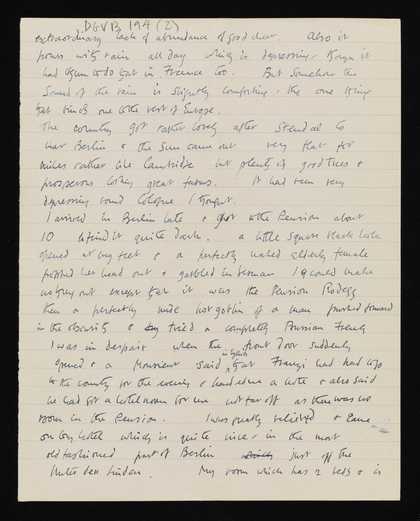 DGVB 194 (2)
extraordinary lack of abundance of good cheer. Also it
pours with rain all day which is depressing - though it
had begun to do that in France too. But somehow the
sound of the rain is slightly comforting - the one thing
that binds one to the rest of Europe.
The country got rather lovely after Stendal to
near Berlin & the sun came out very flat for
miles rather like Cambridge but plenty of good trees &
prosperous looking great farms. It had been very
depressing round Cologne I thought.
I arrived in Berlin late & got to the Pension about
10 to find it quite dark. a little square black hole
opened at my feet & a perfectly naked elderly female
popped her head out & gabbled in German I could make
nothing out except that it was the Pension
then a perfectly nude hobgoblin of a man pushed forward
in the obscurity & tried a completely Prussian French
I was in despair when the front door suddenly
opened & a Monsieur said in English that Franzi had had to go
to the country for the evening & had a note & also said
he had got a hotel room for me not far off as there was no
room in the Pension. I was greatly relieved & came
on to my hotel which is quite nice & in the most
old fashioned part of Berlin just off the
Unter den Linden. My room which has 2 beds & is